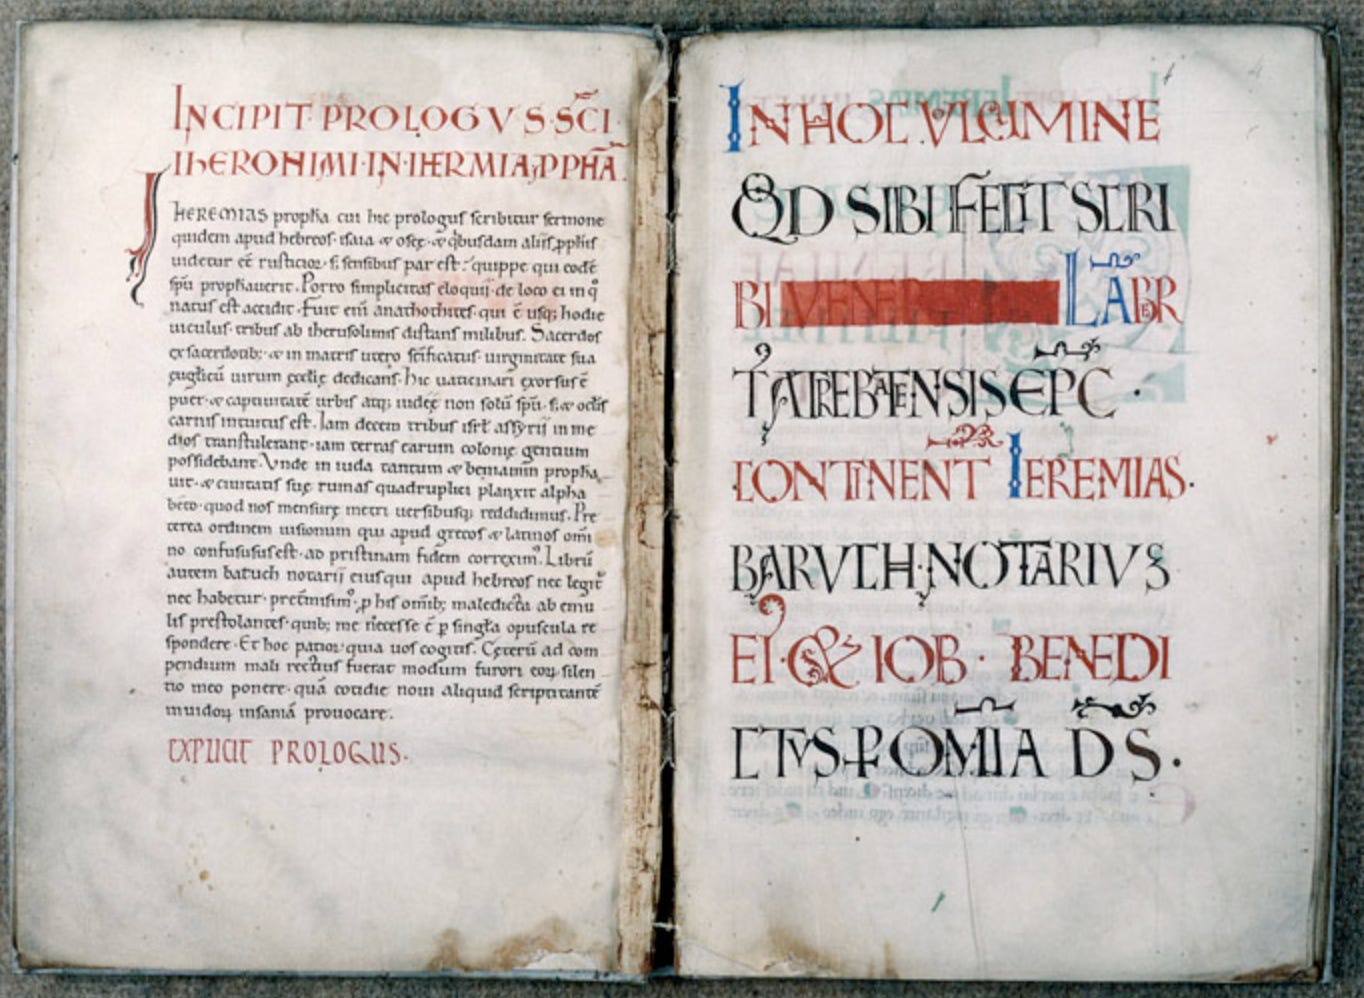 INCIPIT PROLOGVS SCI
IHERONIMI IN IHERMIA PPHA
IHEREMIAS propha cui hic prologus scribitur sermone
quidem apud hebreos· isaia & osee· & qbusdam aliis pphis
uidetur ee rusticior· s; sensibus par est· quippe qui eode
spu prophauerit· Porro simplicitas eloquii· de loco ei in q
natus est accidit· Fuit eni anathothites· qui e usq; hodie
uiculus· tribus ab iherusolimis distans milibus· Sacerdos
ex sacerdotib;· & in matris utero scificatus· uirginitate sua
euglicu uirum ecclie dedicans· hic uaticinari exorsus e
puer· & captiuitate urbis atq; iudee non solu spu· s; & oclis
carnis intuitus est· Iam decem tribus isrl assyrii in me
dios transtulerant· iam terras earum colonie gentium
possidebant· Vnde in iuda tantum & beniamin propha
uit· & ciuitatis sue ruinas quadruplici planxit alpha
beto· quod nos mensure metri uersibusq; reddidimus· Pre
terea ordinem uisionum qui apud grecos & latinos omi
no confususus est· ad pristinam fidem correxim· Libru
autem baruch notarii eius qui apud hebreos nec legit
nec habetur· pretmisim· p his omib; maledicta ab emu
lis prestolantes· quib; me necesse e p singla opuscula re
spondere· Et hoc patior quia uos cogitis· Ceteru ad com
pendium mali rectius fuerat modum furori eor silen
tio meo ponere· qua cotidie noui aliquid scriptitante
inuidor insania prouocare·
EXPLICIT PROLOGUS·
IN HOC VLUMINE
QD SIBI FECIT SCRI
BI LABR
T ATREBATENSIS EPC·
CONTINENT IEREMIAS·
BARVCH NOTARIVS
EI· & IOB· BENEDI
CTVS P OMIA DS·